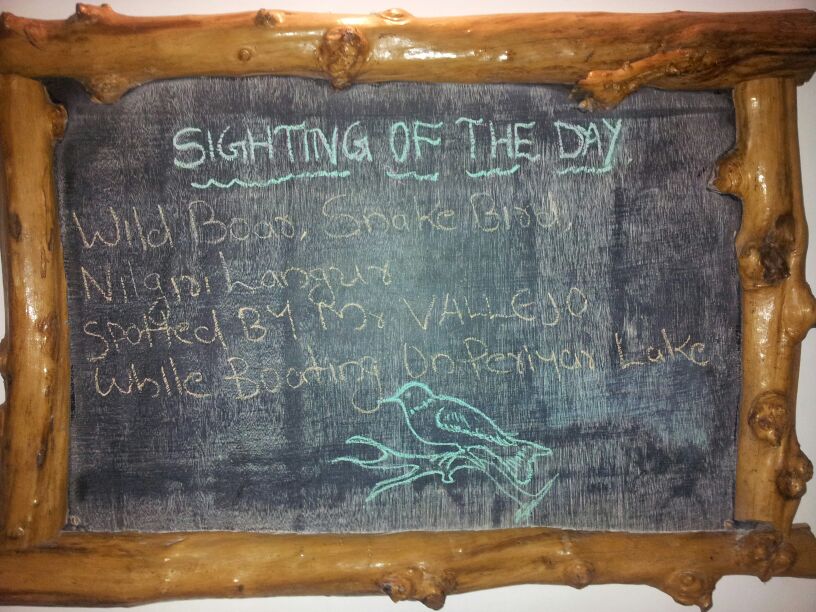 SIGHTING OF THE DAY
Wild Boar, Snake Bird,
Nilgiri Langur
Spotted BY Mr VALLEJO
While Boating On Periyar Lake